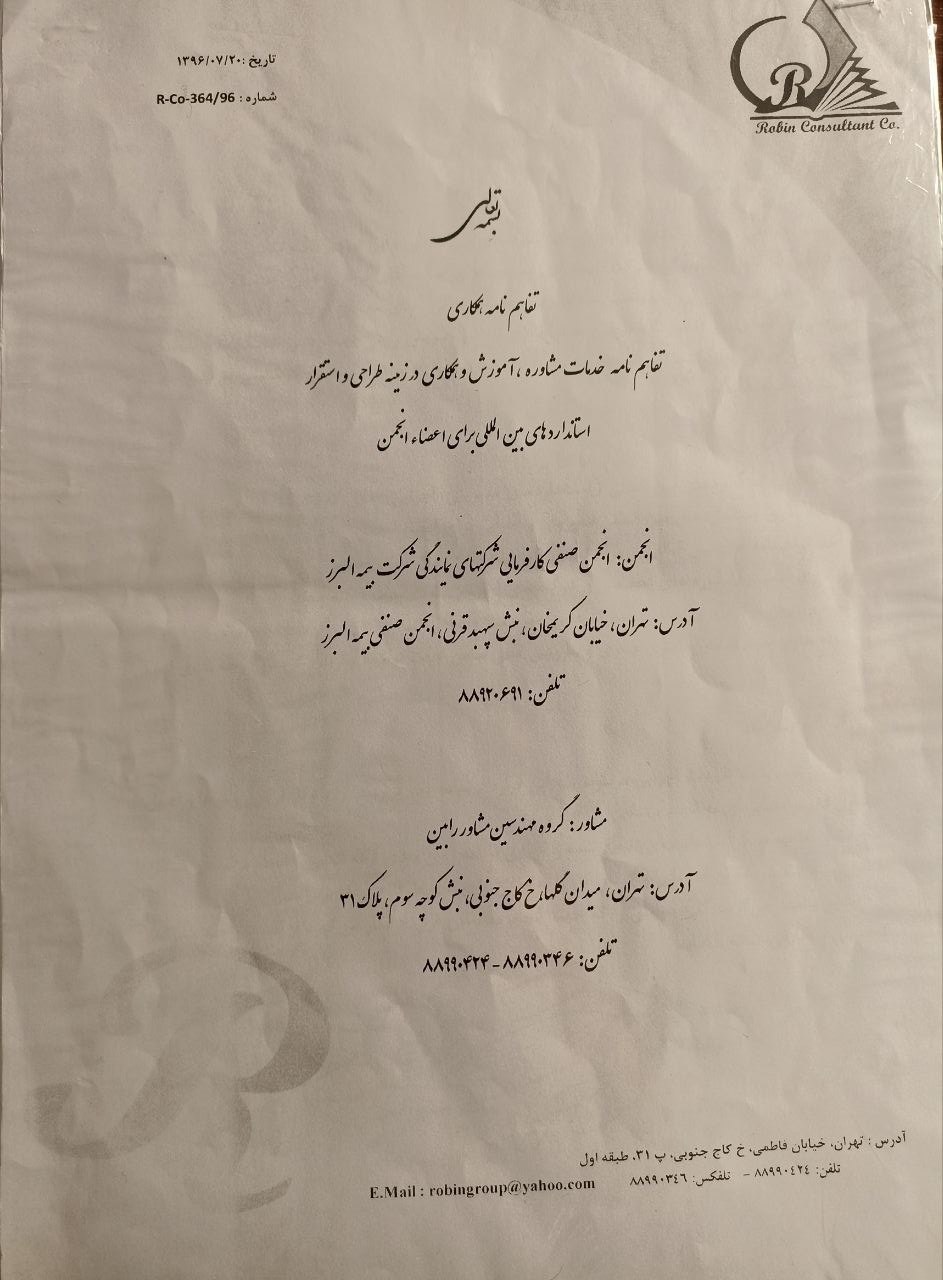 تاریخ :۱۳۹۶/۰۷/۲۰
شماره : R-Co-364/96
R
Robin Consultant Co.
بسمه تعالی
تفاهم نامه همکاری
تفاهم نامه خدمات مشاوره ،آموزش و همکاری در زمینه طراحی و استقرار
استانداردهای بین المللی برای اعضاء انجمن
انجمن: انجمن صنفی کارفرمایی شرکتهای نمایندگی شرکت بیمه البرز
آدرس: تهران، خیابان کریمخان، نبش سپهبد قرنی، انجمن صنفی بیمه البرز
تلفن: ۸۸۹۲۰۶۹۱
مشاور: گروه مهندسین مشاور رابین
آدرس: تهران، میدان گلها،خ کاج جنوبی، نبش کوچه سوم، پلاک ۳۱
تلفن: ۸۸۹۹۰۳۴۶ - ۸۸۹۹۰۴۲۴
آدرس : تهران، خیابان فاطمی، خ کاج جنوبی، پ ۳۱، طبقه اول
تلفن: ۸۸۹۹۰٤۲٤ - تلفکس: ۸۸۹۹۰۳٤٦ E.Mail : robingroup@yahoo.com